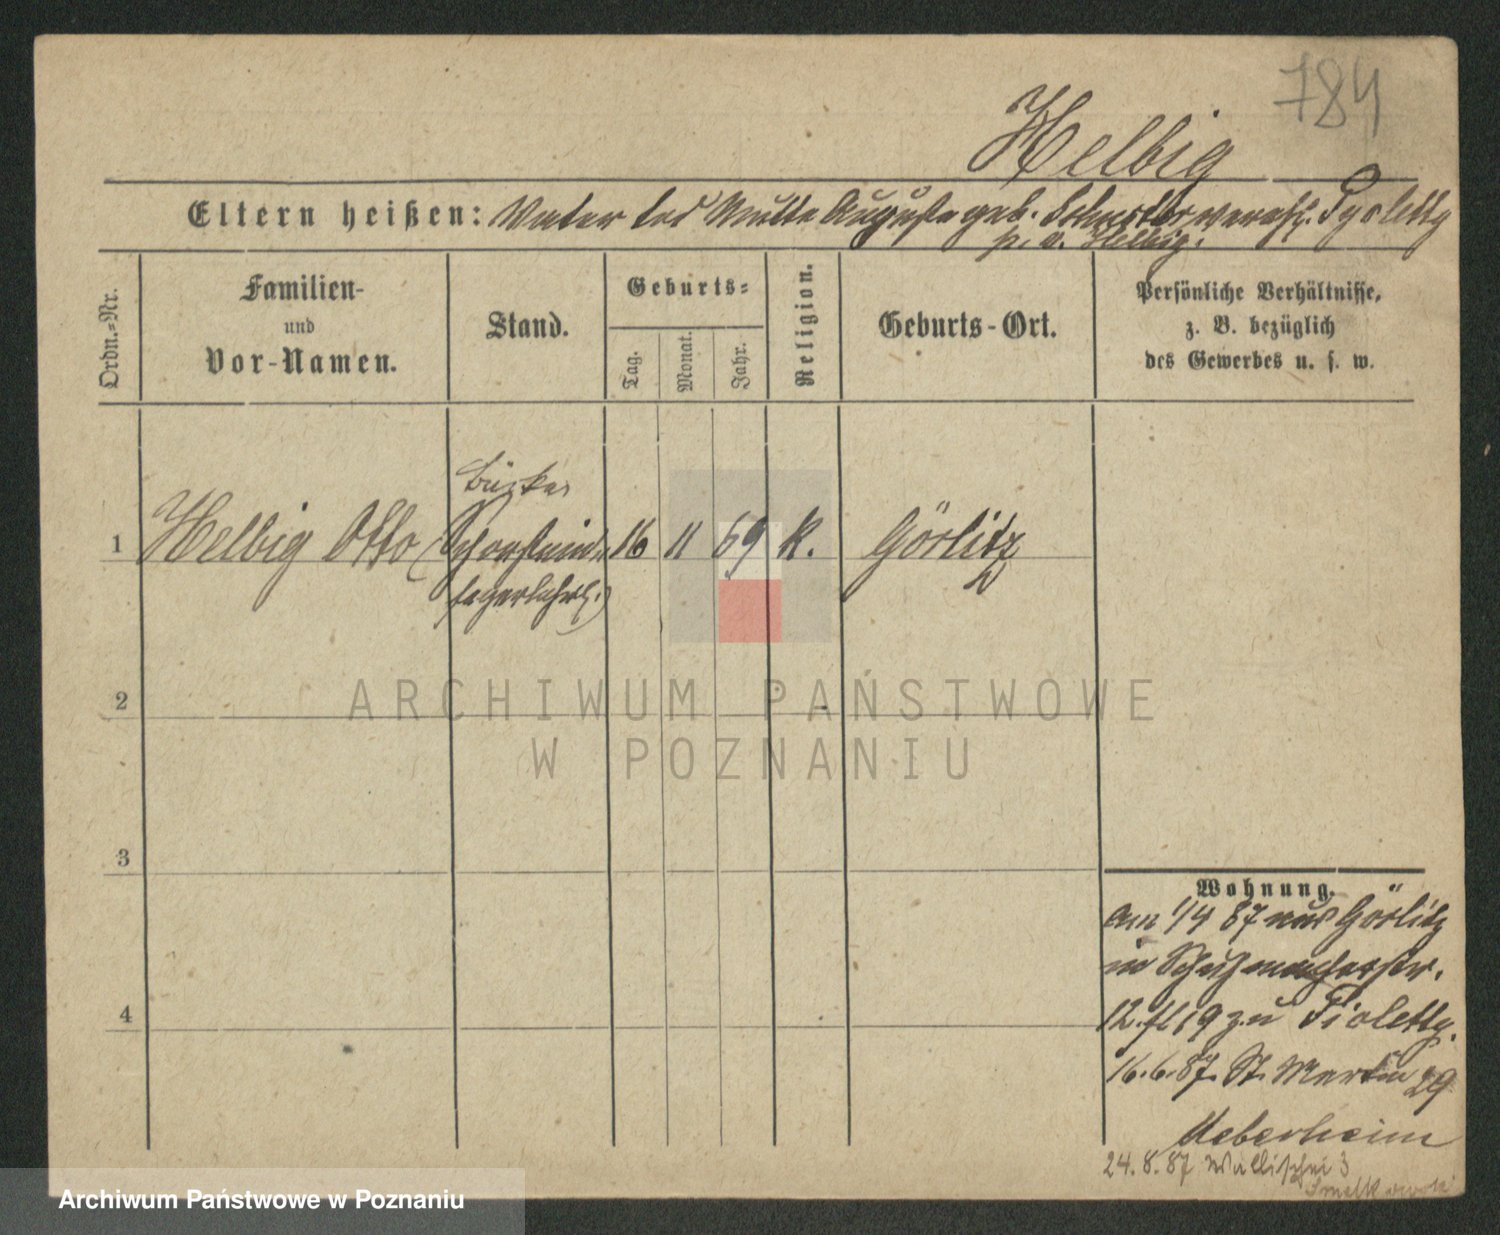 784
Helbig
Eltern heißen: Vater tod Mutter Auguste geb. verehl. Fioletty
p. v. Helbig.
Ordn.-Nr.
Familien-
und
Vor-Namen.
Stand.
Geburts-
Tag.
Monat.
Jahr.
Religion.
Geburts-Ort.
Persönliche Verhältnisse,
z. B. bezüglich
des Gewerbes u. s. w.
1 Helbig Otto (Schornstein- 16 11 69 k. Görlitz
fegerlehrl.)
2
3
4
ARCHIWUM PAŃSTWOWE
W POZNANIU
Wohnung.
am 1/4 87 aus Görlitz
in Schuhmacherstr.
12. 19 zu Fioletty.
16.6.87. St. Martin 29
Ueberheim
24.8.87 Wallischei 3
Archiwum Państwowe w Poznaniu